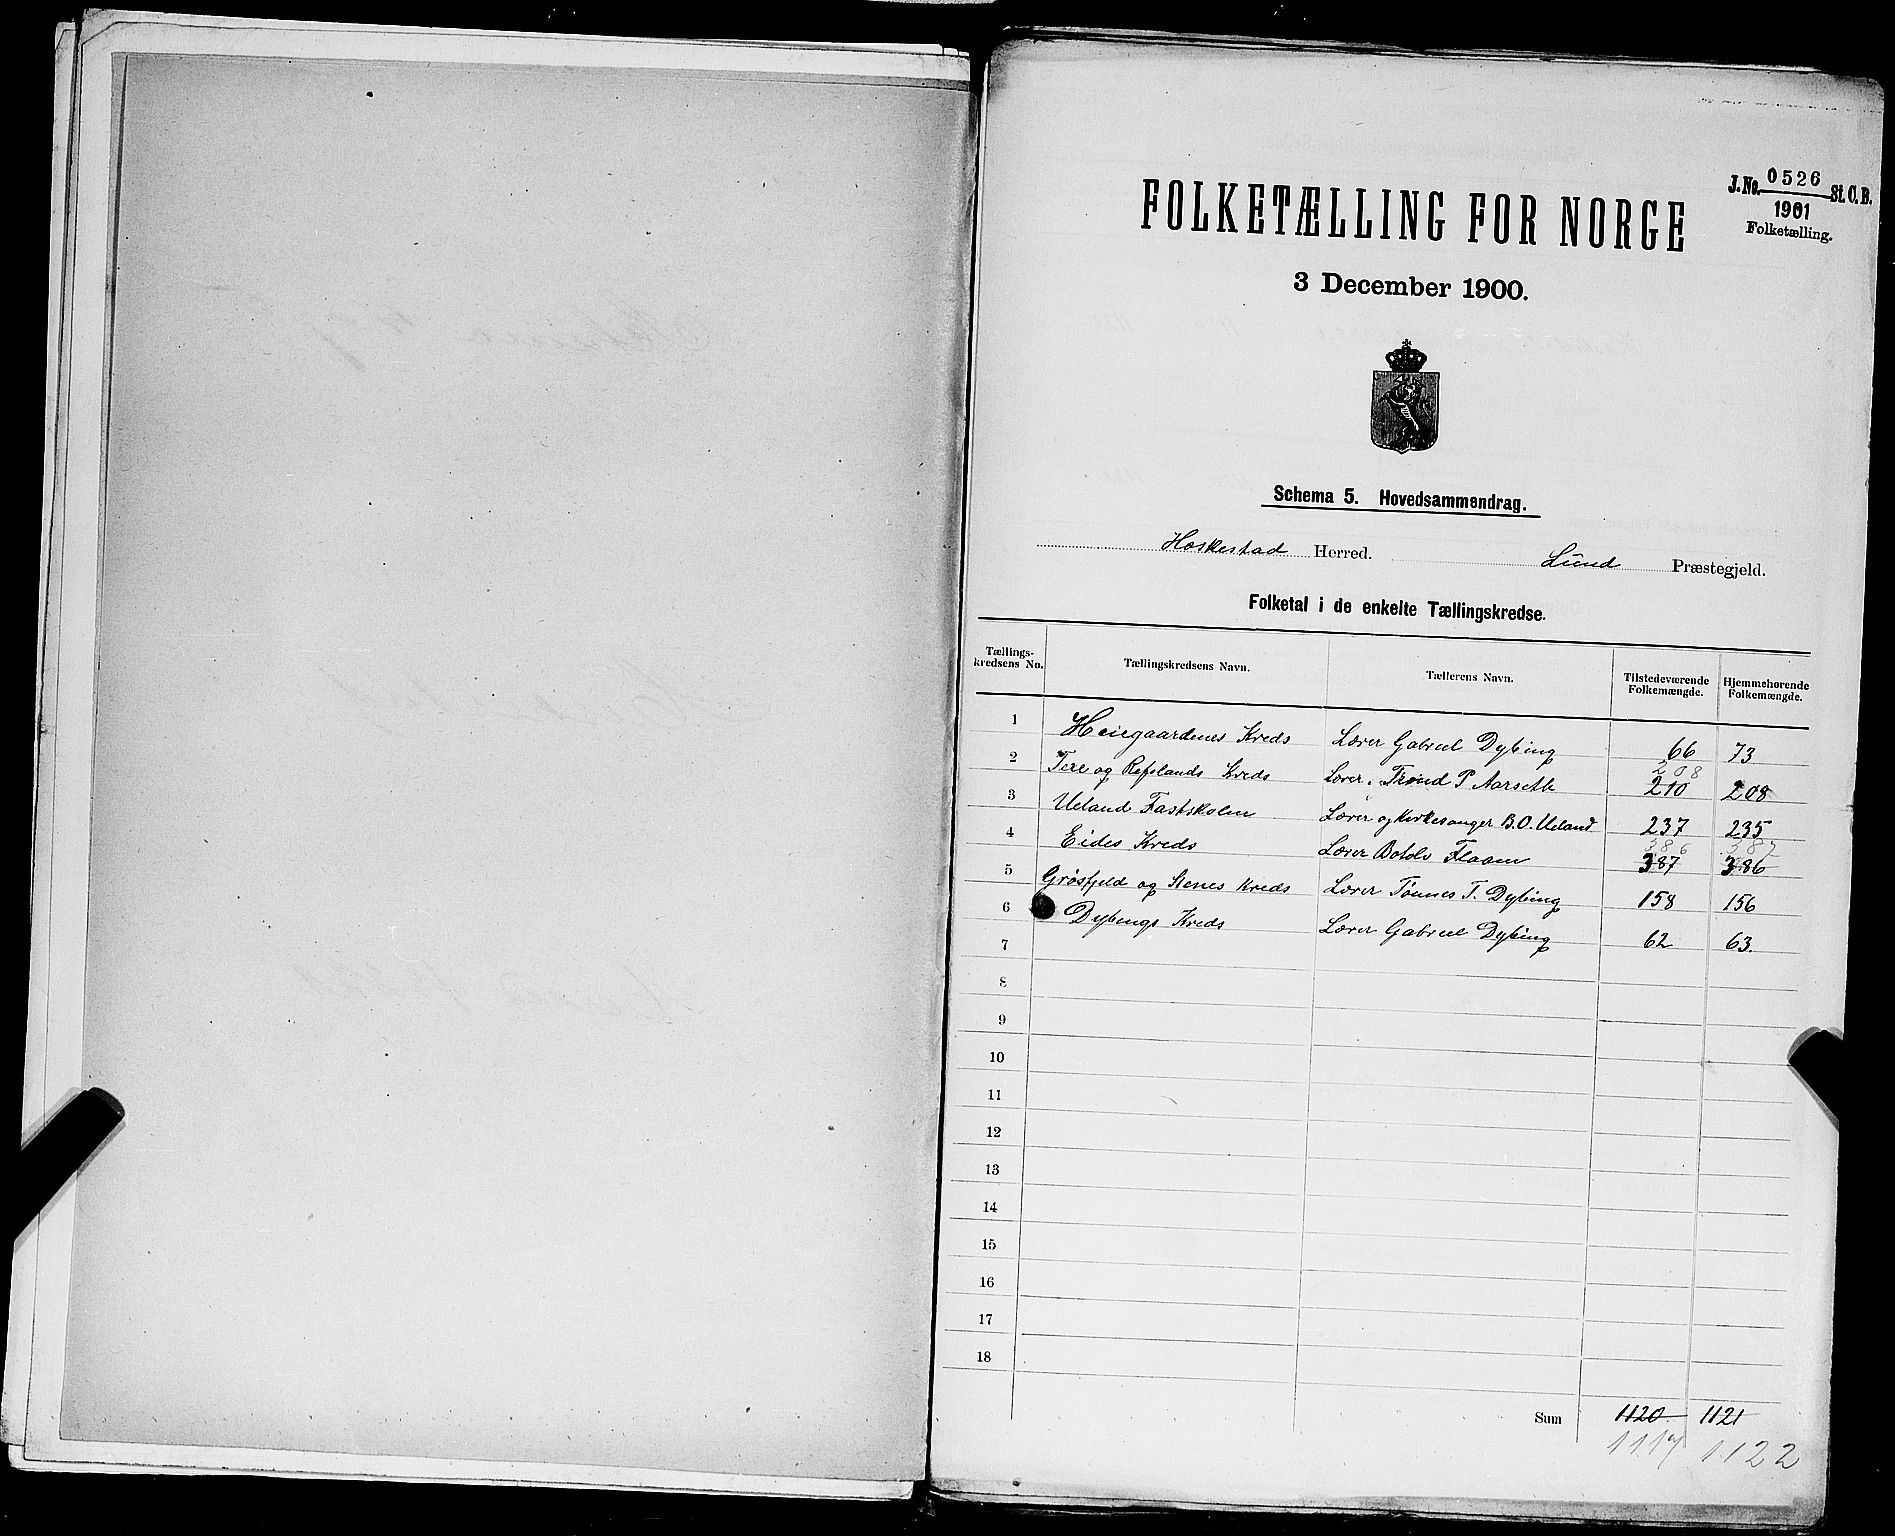 J. No. 0526 St. C. B.
1901
Folketælling.
FOLKETÆLLING FOR NORGE
3 December 1900.
Schema 5. Hovedsammendrag.
Heskestad Herred. Lund Præstegjeld.
Folketal i de enkelte Tællingskredse.
Tællings-kredsens No. Tællingskredsens Navn. Tællerens Navn. Tilstedeværende Folkemængde. Hjemmehørende Folkemængde.
1 Heiegaardenes Kreds Lærer Gabriel Dybing 66 73
208
2 Tere og Refslands Kreds Lærer Trond P Aarseth 210 208
3 Ueland Fastskolen Lærer og Kirkesanger B.O. Ueland 237 235
386 387
4 Eides Kreds Lærer Botolv Flaam 387 386
5 Grøsfjeld og Stenes Kreds Lærer Tønnes T. Dybing 158 156
6 Dybings Kreds Lærer Gabriel Dybing 62 63.
7
8
9
10
11
12
13
14
15
16
17
18
Sum 1120 1121
1117 1122